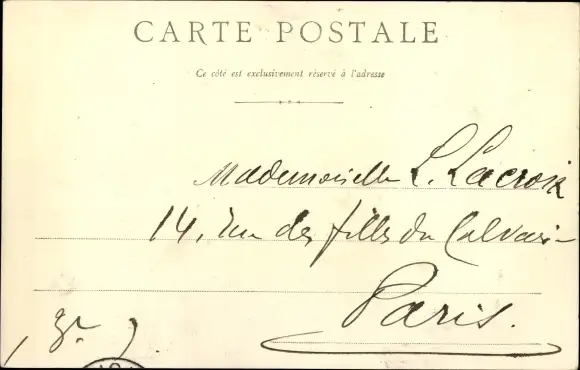 CARTE POSTALE
Ce côté est exclusivement réservé à l'adresse
Mademoiselle L. Lacroix
14, rue des filles du Calvaire
Paris.